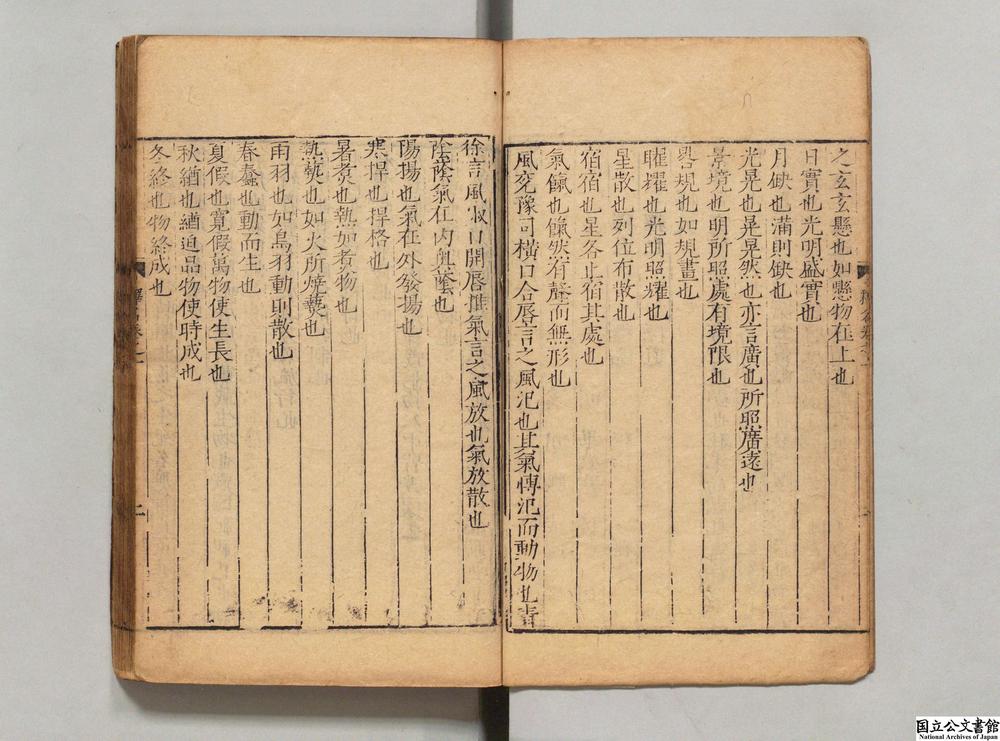 之玄玄懸也如懸物在上也
日實也光明盛實也
月缺也滿則缺也
光晃也晃晃然也亦言廣也所照廣遠也
景境也明所照處有境限也
晷規也如規畫也
曜燿也光明照耀也
星散也列位布散也
宿宿也星各止宿其處也
氣餼也餼然有聲而無形也
風兗豫司橫口合唇言之風氾也其氣愽氾而動物也青
徐言風踧口開唇推氣言之風放也氣放散也
陰蔭也氣在內奧蔭也
陽揚也氣在外發揚也
寒捍也捍格也
暑煮也熱如煮物也
熱爇也如火所燒爇也
雨羽也如鳥羽動則散也
春蠢也動而生也
夏假也寬假萬物使生長也
秋緧也緧迫品物使時成也
冬終也物終成也
二
国立公文書館
National Archives of Japan